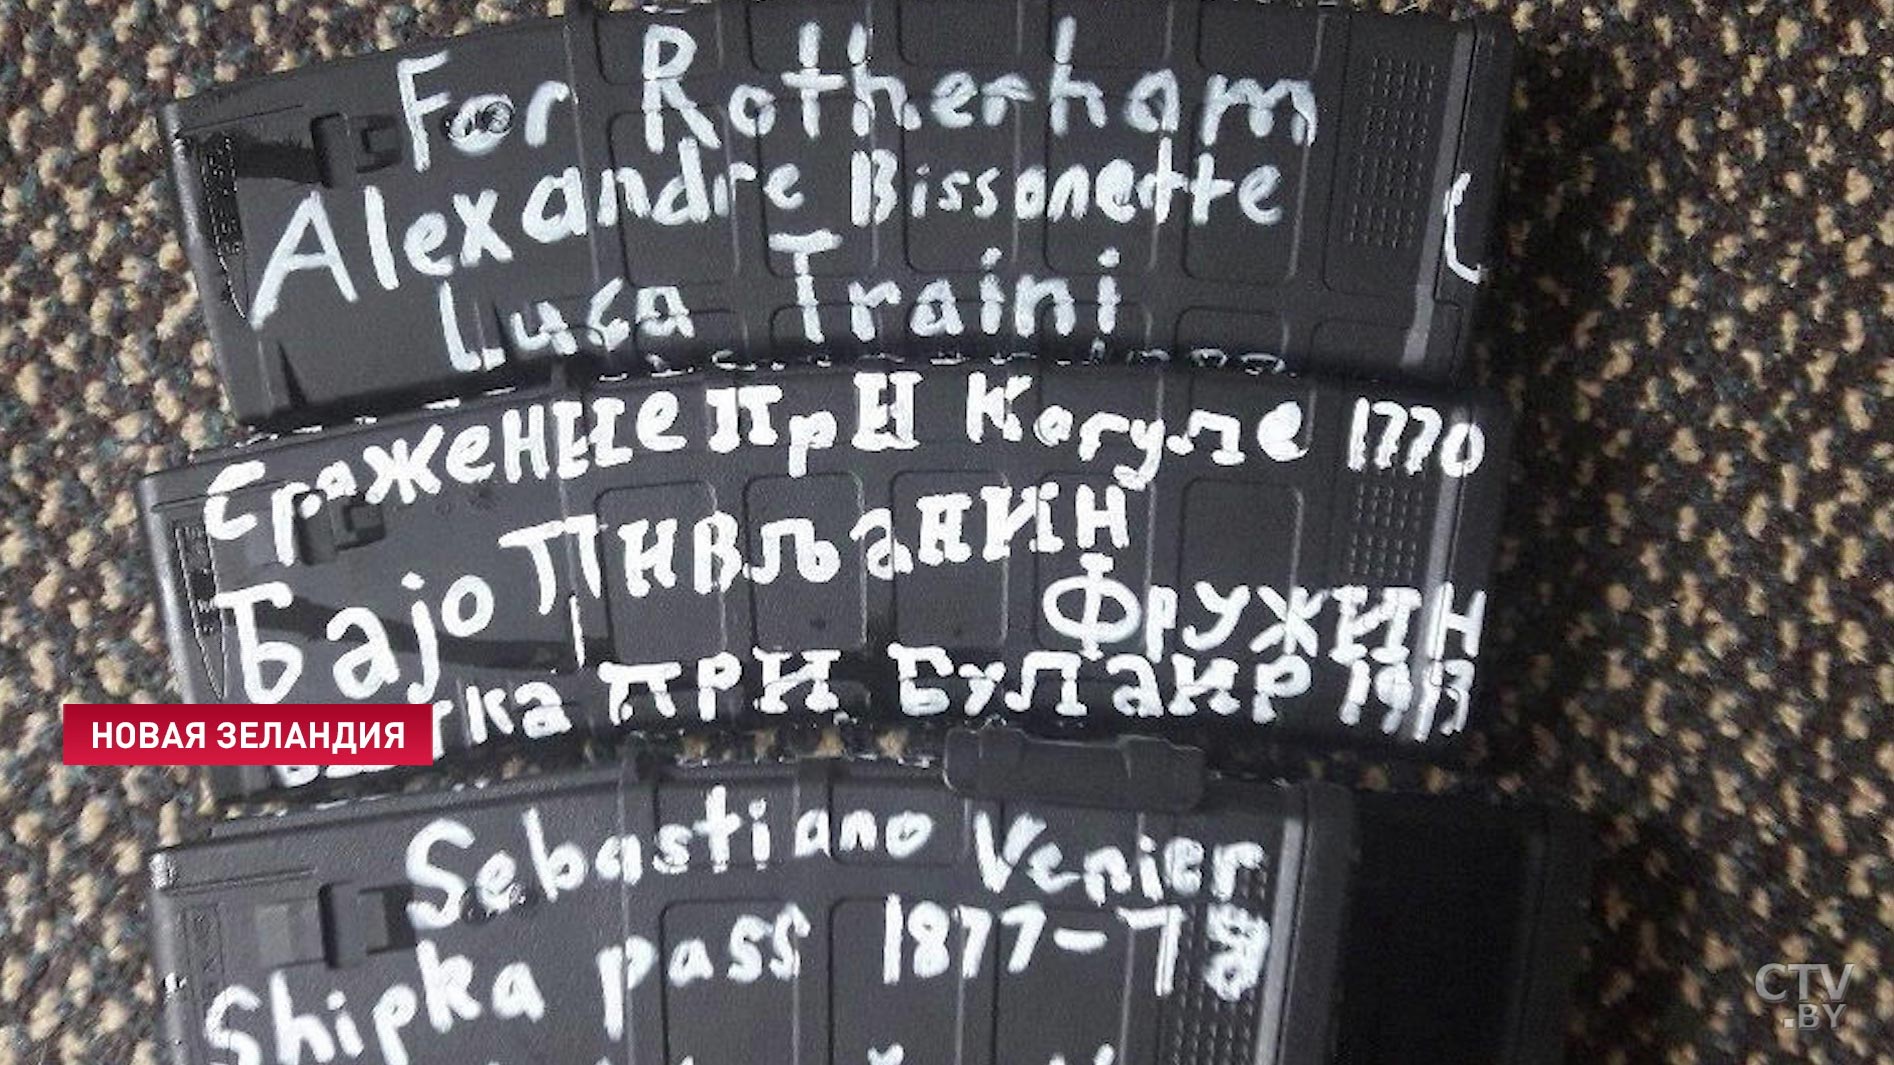 For Rotherham
Alexandre Bissonette
Luca Traini
Сражение при Кагуле 1770
Бајо Пивљанин
Фружин
при Булаир 1913
НОВАЯ ЗЕЛАНДИЯ
Sebastiano Venier
Shipka pass 1877-78
CTV
.BY